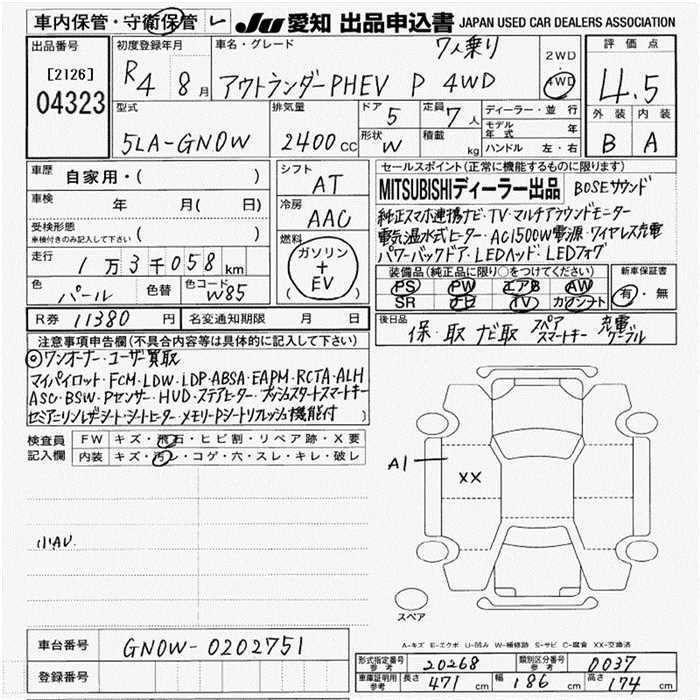 車内保管・守衛保管 レ
JU 愛知 出品申込書 JAPAN USED CAR DEALERS ASSOCIATION
出品番号
[2126]
04323
初度登録年月
R4 8月
車名・グレード
7人乗り
アウトランダーPHEV P 4WD
2WD
4WD
評価点
4.5
外装 内装
B A
型式
5LA-GN0W
排気量
2400cc
ドア 5
形状 W
定員 7人
積載 kg
ディーラー・並行
モデル年式 年
ハンドル 左・右
車歴 自家用・( )
車検 年 月( 日)
受検形態
車検付きのみ記入して下さい ( )
走行 1万3千058km
色 パール 色替 色コード W85
シフト AT
冷房 AAC
燃料
ガソリン
+
EV
( )
R券 11380円 名変通知期限 月 日
セールスポイント(正常に機能するものに限ります)
MITSUBISHIディーラー出品 BOSEサウンド
純正スマホ連携ナビ・TV・マルチアラウンドモニター
電気温水式ヒーター・AC1500W電源・ワイヤレス充電
パワーバックドア・LEDヘッド・LEDフォグ
装備品(純正品に限り○をつけてください)
PS PW エアB AW
SR ナビ TV カワシート
新車保証書
有・無
後日品
保・取 ナビ取 スペアスマートキー 充電ケーブル
注意事項申告欄(不具合内容等は具体的に記入して下さい)
◎ワンオーナー・ユーザー買取
マイパイロット・FCM・LDW・LDP・ABSA・EAPM・RCTA・ALH
ASC・BSW・Pセンサー・HUD・ステアヒーター・プッシュスタートスマートキー
セミアニリンレザーシート・シートヒーター・メモリーPシートリフレッシュ機能付
検査員記入欄
FW キズ・飛石・ヒビ割・リペア跡・X要
内装 キズ・汚レ・コゲ・穴・スレ・キレ・破レ
小AU
A1
XX
スペア
A-キズ E-エクボ U-凹み W-補修跡 S-サビ C-腐食 XX-交換済
車台番号 GN0W-0202751
登録番号
形式指定番号 参考 20268 類別区分番号 参考 0037
車庫証明用 参考 長さ 471cm 幅 186cm 高さ 174cm